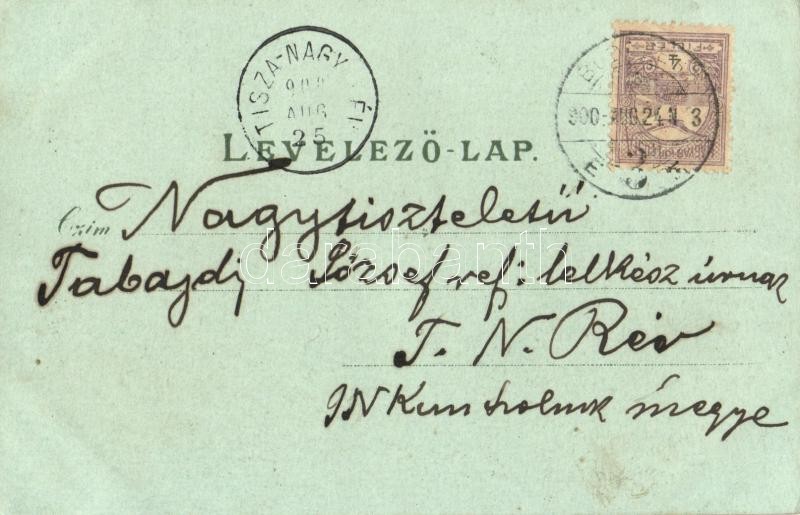 TISZA-NAGY RÉV
900
AUG
25
900 AUG. 24
4
FILLÉR
LEVELEZŐ-LAP.
Czim Nagytiszteletű
Tabajdi József ref: lelkész úrnak
T. N. Rév
JNKunszolnok megye
darabanth